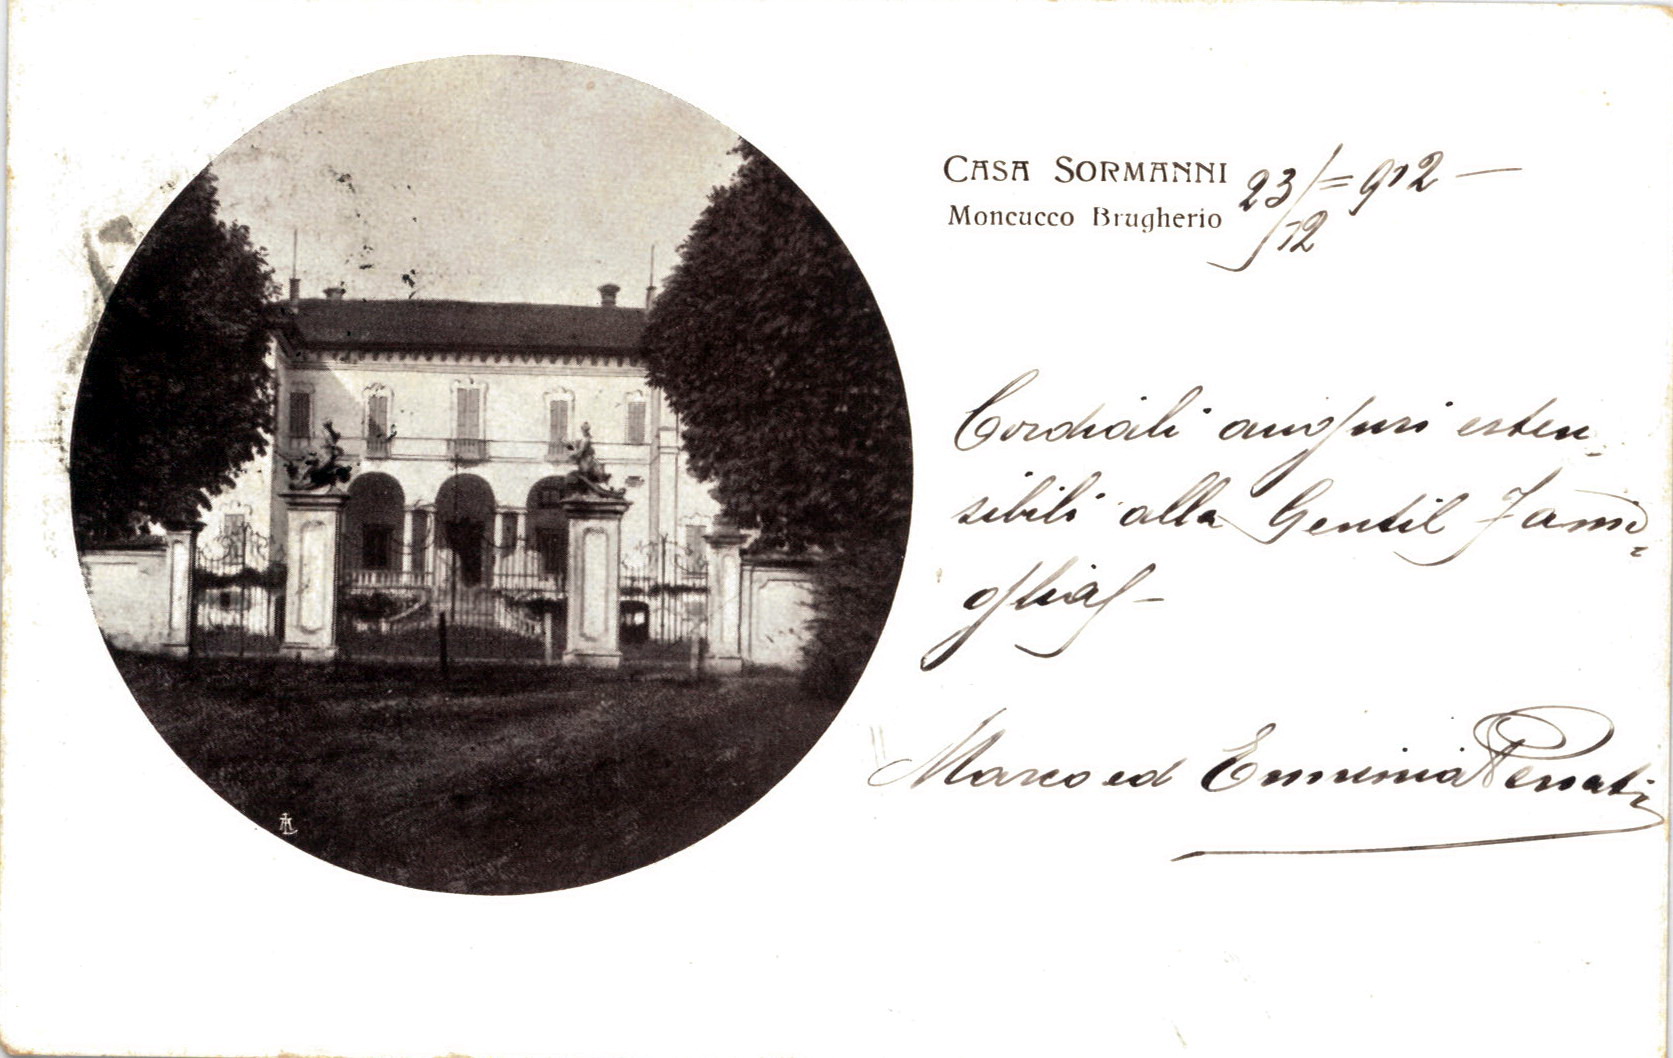 CASA SORMANNI
Moncucco Brugherio
23/12=912—
Cordiali auguri esten-
sibili alla Gentil Fami-
glia—
Marco ed Erminia Penati